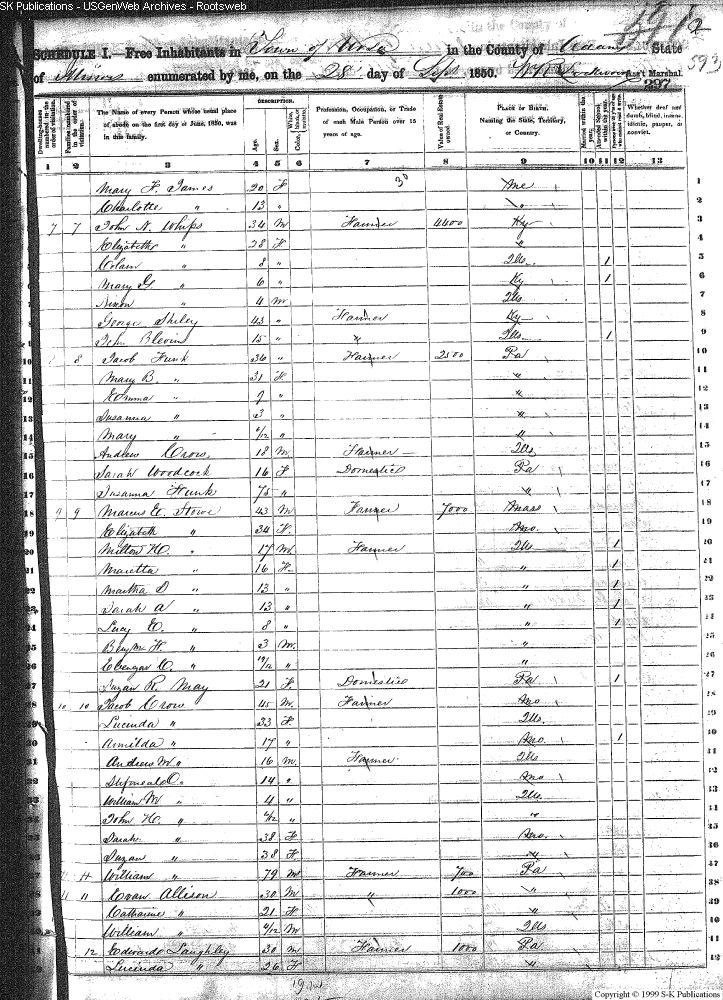 SK Publications - USGenWeb Archives - Rootsweb
2
593
SCHEDULE I.—Free Inhabitants in Town of Ursa in the County of Adams State
of Illinois enumerated by me, on the 28 day of Sept 1850. Ass't Marshal.
297
Dwelling-houses numbered in the order of visitation.
Families numbered in the order of visitation.
The Name of every Person whose usual place of abode on the first day of June, 1850, was in this family.
DESCRIPTION.
Age.
Sex.
White, black, or mulatto.
Color,
Profession, Occupation, or Trade of each Male Person over 15 years of age.
Value of Real Estate owned.
PLACE OF BIRTH. Naming the State, Territory, or Country.
Married within the year.
Attended School within the year.
Whether deaf and dumb, blind, insane, idiotic, pauper, or convict.
1 2 3 4 5 6 7 8 9 10 11 12 13
30
Mary F. James 20 F Mo 1
Charlotte " 13 " " 2
7 7 John N. Whips 34 M Farmer 4400 Ky 3
Elizabeth " 28 F " 4
" 8 " Ills 1 5
Mary G " 6 " Ky 1 6
Nixon " 4 M Ills 7
George Shiley 43 " Farmer Ky 8
9 John Blevin 15 " " Ills 1 9
10 8 Jacob Funk 36 " Farmer 2500 Pa 10
11 Mary B. " 31 F " 11
12 Emma " 7 " " 12
13 Susanna " 3 " " 13
14 Mary " 6/12 " " 14
15 Andrew Crow 18 M Farmer Ills 15
16 Sarah Woodcock 16 F Domestic Pa 16
17 Susanna Funk 75 " "
18 9 9 Marcus E. Stowe 43 M Farmer 7000 Mass 18
19 Elizabeth " 34 F Mo
20 Milton H. " 17 M Farmer Ills 1
21 Maretta " 16 F " 1
22 Martha D " 13 " " 1
23 Sarah A " 13 " " 1
24 Lucy E. " 8 " " 1
25 Benjm H. " 3 M "
26 Ebenezar C. " 10/12 " "
27 Suzan R. May 21 F Domestic Pa 1
28 10 10 Jacob Crow 45 M Farmer Mo
29 Lucinda " 33 F Ills
30 Armilda " 17 " Mo 1
31 Andrew M " 16 M Farmer Ills
" 14 " Mo
William M " 4 " Ills
John H. " 6/12 " "
Sarah " 38 F Mo
Suzan " 38 F "
William " 79 M Farmer 700 Pa
11 11 Evan Allison 30 M " 1000 "
Catharine " 21 F "
William " 6/12 M Ills
12 Edward Laughley 30 M Farmer 1000 Pa
Lucinda " 26 F "
Copyright © 1999 S-K Publications